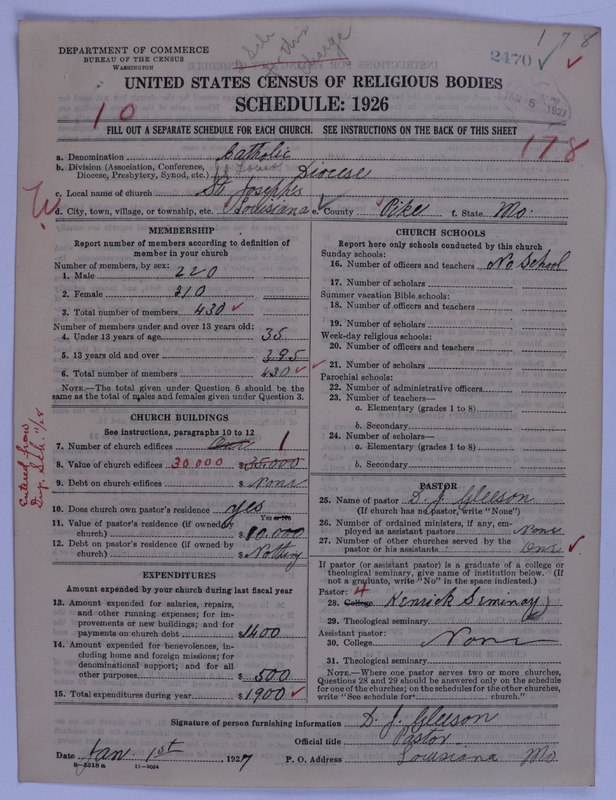 178
2470
JAN 6 1927
DEPARTMENT OF COMMERCE
BUREAU OF THE CENSUS
WASHINGTON
UNITED STATES CENSUS OF RELIGIOUS BODIES
SCHEDULE: 1926
10
FILL OUT A SEPARATE SCHEDULE FOR EACH CHURCH. SEE INSTRUCTIONS ON THE BACK OF THIS SHEET
178
a. Denomination Catholic
b. Division (Association, Conference, Diocese, Presbytery, Synod, etc.) St Louis Diocese
c. Local name of church St. Josephs
d. City, town, village, or township, etc. Louisiana e. County Pike f. State Mo.
MEMBERSHIP
Report number of members according to definition of member in your church
Number of members, by sex:
1. Male 220
2. Female 210
3. Total number of members 430
Number of members under and over 13 years old:
4. Under 13 years of age 35
5. 13 years old and over 395
6. Total number of members 430
NOTE.—The total given under Question 6 should be the same as the total of males and females given under Question 3.
CHURCH BUILDINGS
See instructions, paragraphs 10 to 12
7. Number of church edifices One 1
8. Value of church edifices 30 000 $35.000
9. Debt on church edifices $ None
10. Does church own pastor's residence yes
Yes or No
11. Value of pastor's residence (if owned by church) $10.000
12. Debt on pastor's residence (if owned by church) $ Nothing
EXPENDITURES
Amount expended by your church during last fiscal year
13. Amount expended for salaries, repairs, and other running expenses; for improvements or new buildings; and for payments on church debt $1400
14. Amount expended for benevolences, including home and foreign missions; for denominational support; and for all other purposes $500
15. Total expenditures during year $1900
CHURCH SCHOOLS
Report here only schools conducted by this church
Sunday schools:
16. Number of officers and teachers No School
17. Number of scholars
Summer vacation Bible schools:
18. Number of officers and teachers
19. Number of scholars
Week-day religious schools:
20. Number of officers and teachers
21. Number of scholars
Parochial schools:
22. Number of administrative officers
23. Number of teachers—
a. Elementary (grades 1 to 8)
b. Secondary
24. Number of scholars—
a. Elementary (grades 1 to 8)
b. Secondary
PASTOR
25. Name of pastor D. J. Gleeson
(If church has no pastor, write "None")
26. Number of ordained ministers, if any, employed as assistant pastors None
27. Number of other churches served by the pastor or his assistants One
If pastor (or assistant pastor) is a graduate of a college or theological seminary, give name of institution below. (If not a graduate, write "No" in the space indicated.)
Pastor: 4
28. College Kenrick Seminay
29. Theological seminary
Assistant pastor:
30. College None
31. Theological seminary
NOTE.—Where one pastor serves two or more churches, Questions 28 and 29 should be answered only on the schedule for one of the churches; on the schedules for the other churches, write "See schedule for church."
Entered from Dup. Sch. 11/28
Signature of person furnishing information D. J. Gleeson
Official title Pastor
Date Jan. 1st 1927 P. O. Address Louisiana Mo.
8—5518 a 11—9034